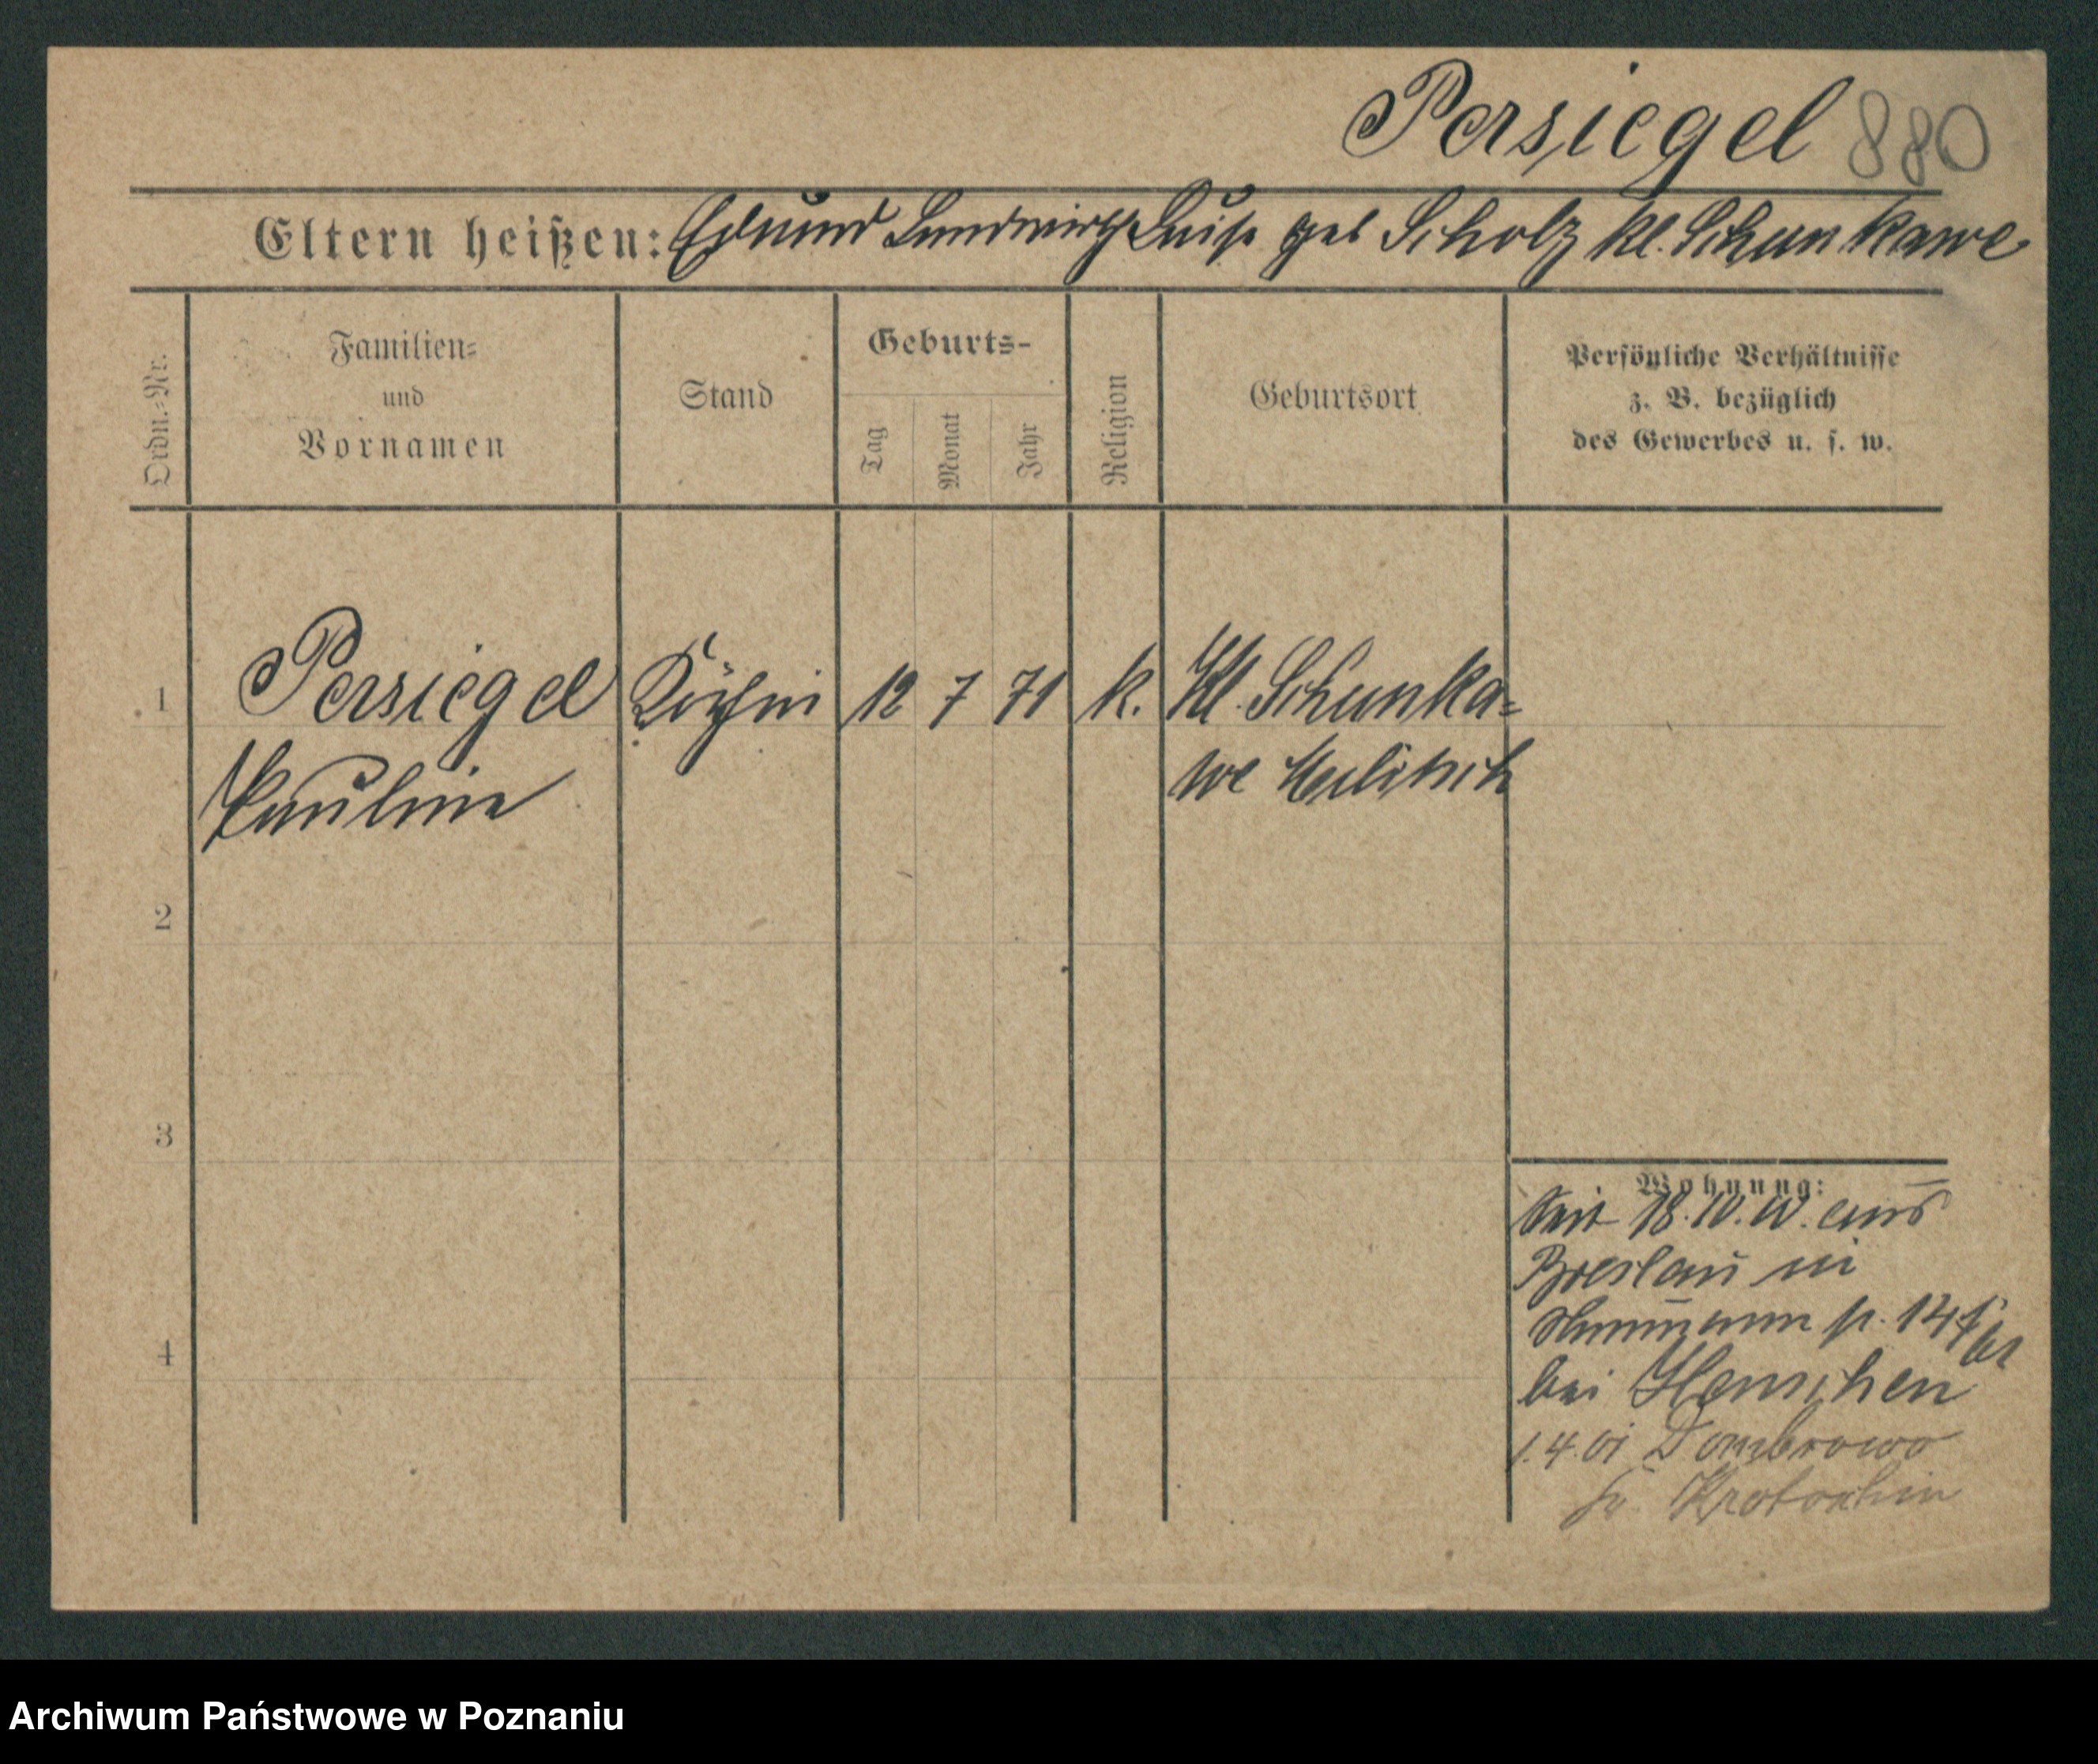 Persiegel 880
Eltern heißen: Eduund Landwirth Luise geb Scholz Kl. Schunkawe
Ordn.-Nr.
Familien-
und
Vornamen
Stand
Geburts-
Tag
Monat
Jahr
Religion
Geburtsort
Persönliche Verhältnisse
z. B. bezüglich
des Gewerbes u. s. w.
1 Persiegel Köchin 12 7 71 k. Kl. Schunka=
Pauline we Militsch
2
3
4
Wohnung:
Seit 18.10.00. aus
Breslau in
p. 14
bei
1.4.01 Dombrowo
Kr. Krotoschin
Archiwum Państwowe w Poznaniu